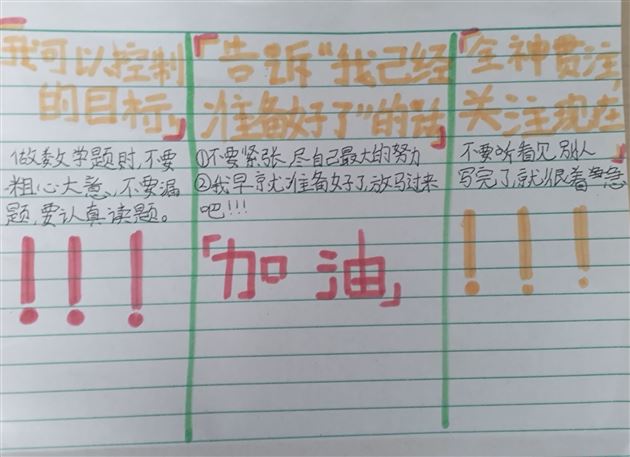 「我可以控制
的目标」
做数学题时,不要
粗心大意,不要漏
题,要认真读题。
!!!
「告诉“我己经
准备好了”的话」
①不要紧张,尽自己最大的努力
②我早就准备好了,放马过来
吧!!!
「加油」
「全神贯注,
关注现在」
不要听看见别人
写完了,就很着急
!!!